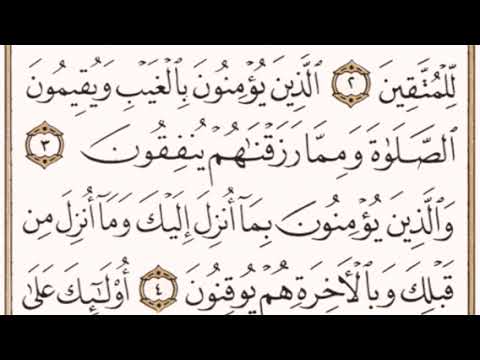 لِّلْمُتَّقِينَ ٢ الَّذِينَ يُؤْمِنُونَ بِالْغَيْبِ وَيُقِيمُونَ
الصَّلَوٰةَ وَمِمَّا رَزَقْنَٰهُمْ يُنفِقُونَ ٣
وَالَّذِينَ يُؤْمِنُونَ بِمَآ أُنزِلَ إِلَيْكَ وَمَآ أُنزِلَ مِن
قَبْلِكَ وَبِالْأَخِرَةِ هُمْ يُوقِنُونَ ٤ أُوْلَٰٓئِكَ عَلَىٰ